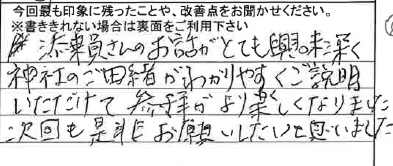 今回最も印象に残ったことや、改善点をお聞かせください。
※書ききれない場合は裏面をご利用下さい
添乗員さんのお話がとても興味深く
神社のご由緒がわかりやすくご説明
いただけて 参拝がより楽しくなりました
次回も是非お願いしたいと思いました